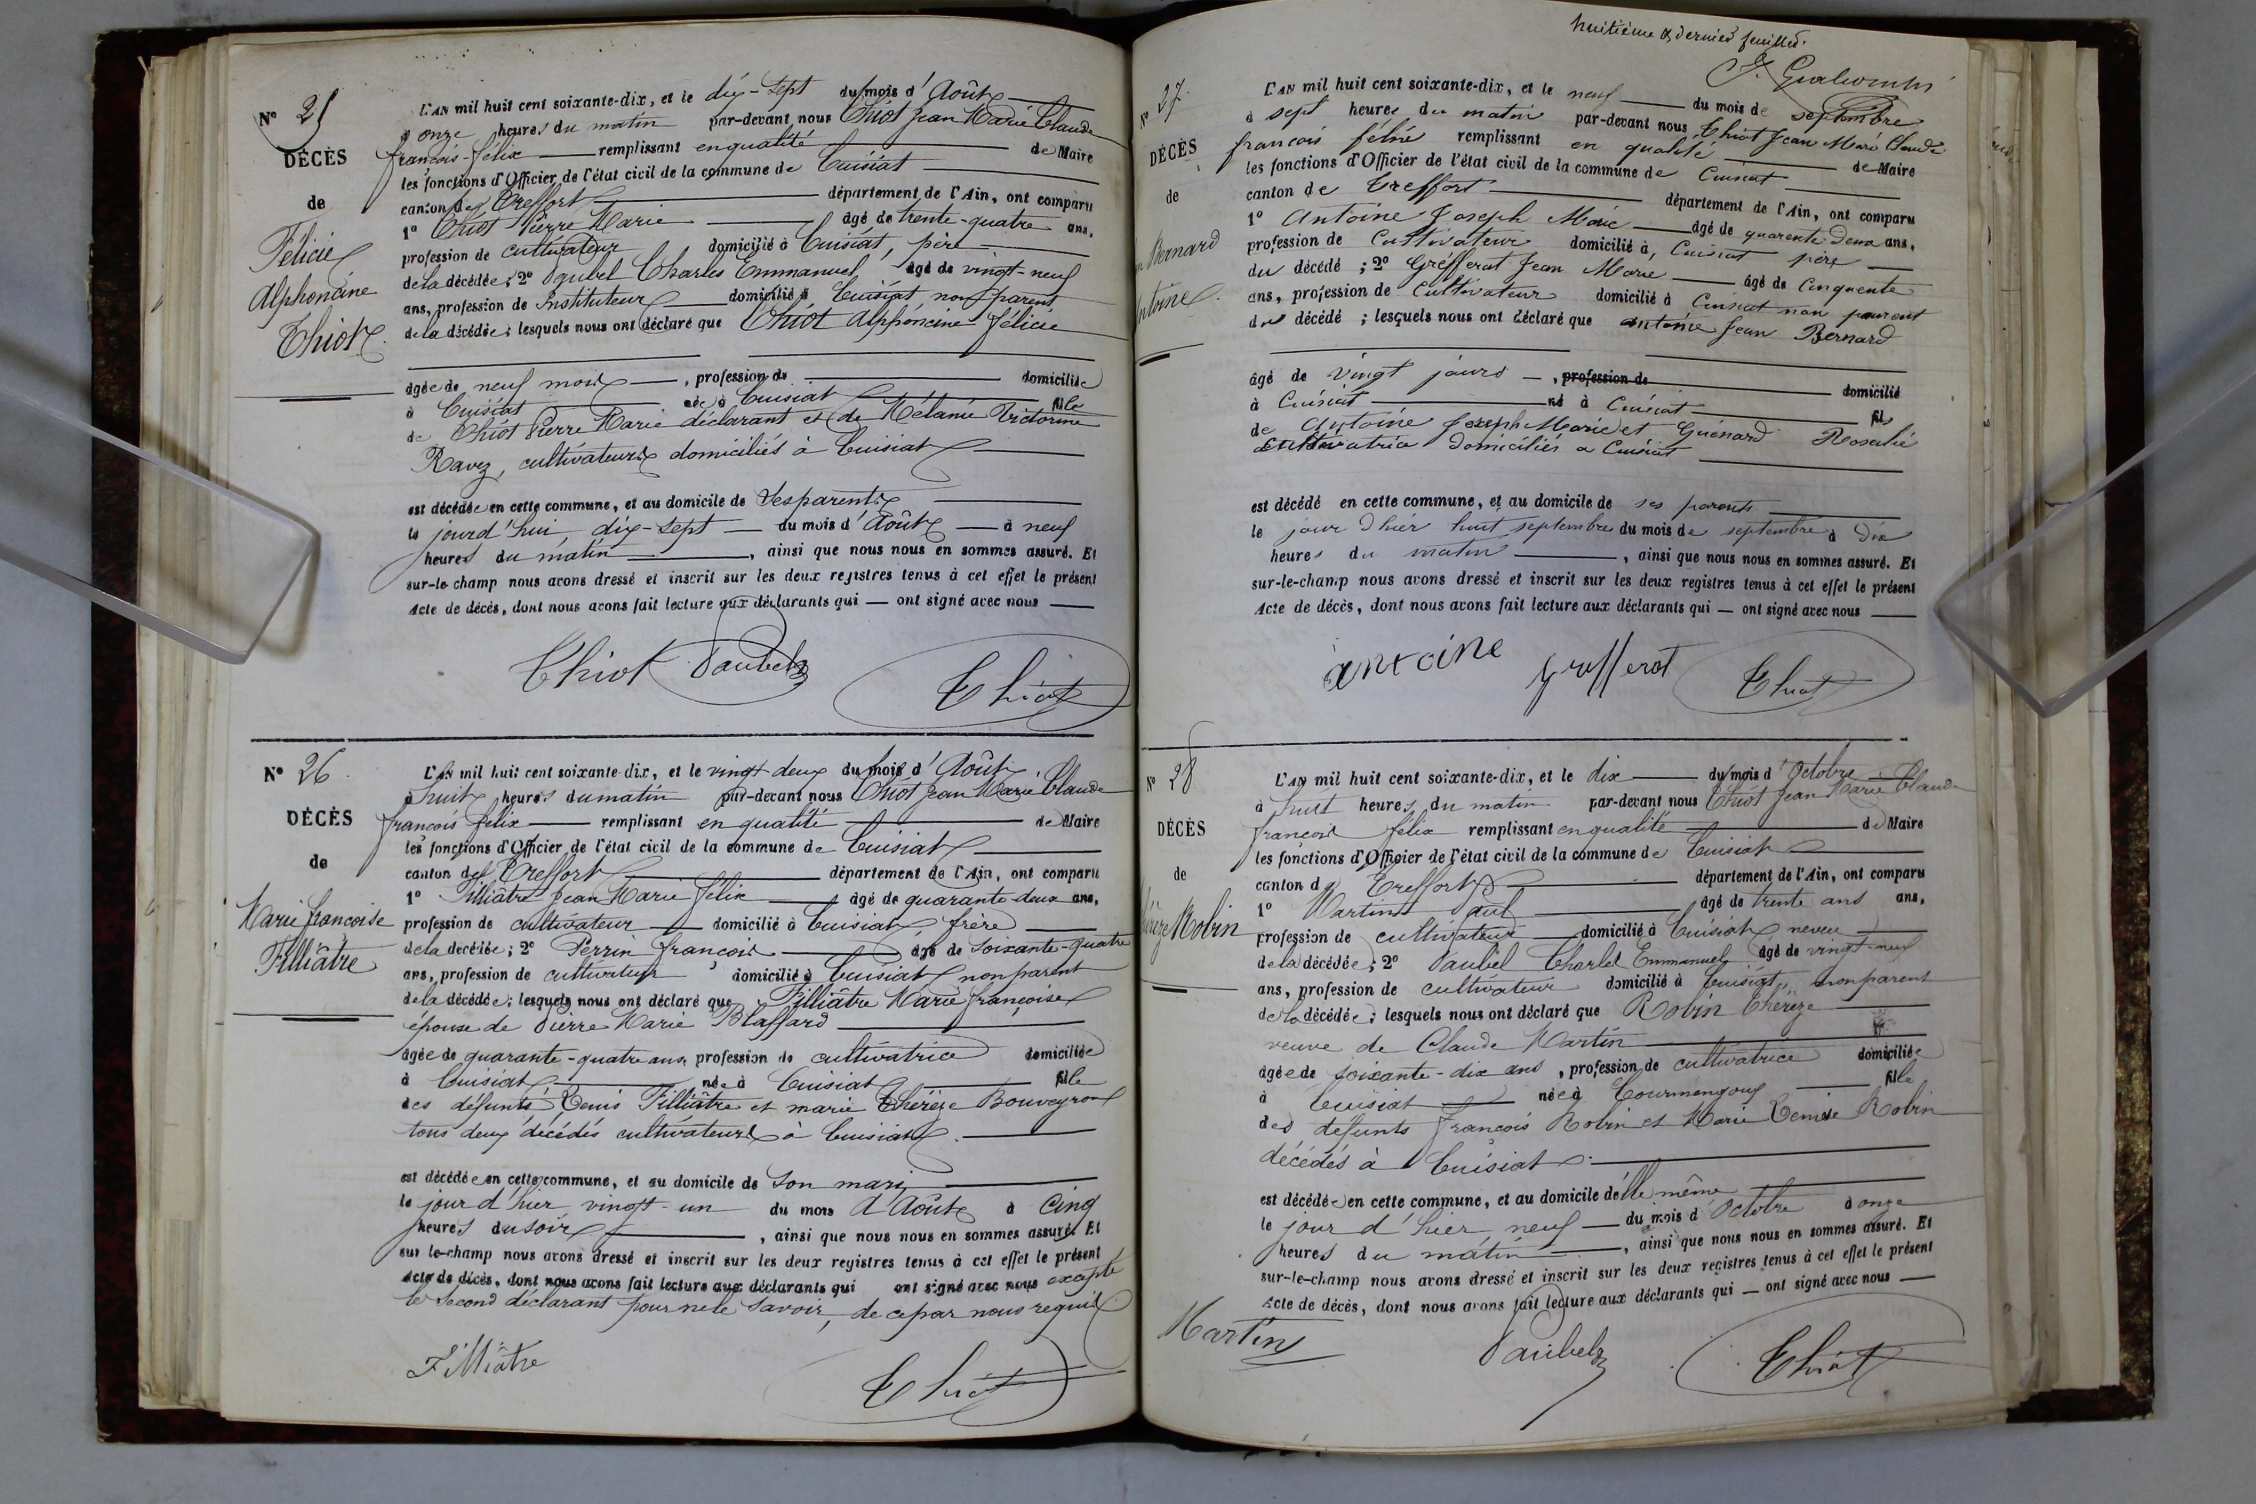 N° 25
DÉCÈS
de
Félicie
Alphoncine
Thiot.
L'AN mil huit cent soixante-dix, et le dix-sept du mois d'Août
à onze heures du matin par-devant nous Thiot Jean Marie Claude
françois-félix remplissant en qualité de Maire
les fonctions d'Officier de l'état civil de la commune de Cuisiat
canton de Treffort département de l'Ain, ont comparu
1° Thiot Pierre Marie âgé de trente-quatre ans,
profession de cultivateur domicilié à Cuisiat, père
de la décédée; 2° Vaubel Charles Emmanuel, âgé de vingt-neuf
ans, profession de Instituteur domicilié à Cuisiat, non parent
de la décédée; lesquels nous ont déclaré que Thiot Alphoncine félicie
âgée de neuf mois, profession de domiciliée
à Cuisiat née à Cuisiat fille
de Thiot Pierre Marie déclarant et de Mélanie Victorine
Ravez, cultivateurs domiciliés à Cuisiat
est décédée en cette commune, et au domicile de ses parents
le jourd'hui dix-sept du mois d'Août à neuf
heures du matin, ainsi que nous nous en sommes assuré. Et
sur-le-champ nous avons dressé et inscrit sur les deux registres tenus à cet effet le présent
Acte de décès, dont nous avons fait lecture aux déclarants qui — ont signé avec nous
Thiot Vaubel Thiot
N° 26
DÉCÈS
de
Marie françoise
Filliâtre
L'AN mil huit cent soixante-dix, et le vingt deux du mois d'Août
à huit heures du matin par-devant nous Thiot Jean Marie Claude
françois félix remplissant en qualité de Maire
les fonctions d'Officier de l'état civil de la commune de Cuisiat
canton de Treffort département de l'Ain, ont comparu
1° Filliâtre Jean Marie félix âgé de quarante deux ans,
profession de cultivateur domicilié à Cuisiat frère
de la décédée; 2° Perrin françois âgé de soixante-quatre
ans, profession de cultivateur domicilié à Cuisiat non parent
de la décédée; lesquels nous ont déclaré que Filliâtre Marie françoise
épouse de Pierre Marie Blaffard
âgée de quarante-quatre ans, profession de cultivatrice domiciliée
à Cuisiat née à Cuisiat fille
des défunts Denis Filliâtre et marie Thérèze Bouveyron
tous deux décédés cultivateurs à Cuisiat.
est décédée en cette commune, et au domicile de son mari
le jour d'hier vingt-un du mois d'Août à cinq
heures du soir, ainsi que nous nous en sommes assuré. Et
sur le-champ nous avons dressé et inscrit sur les deux registres tenus à cet effet le présent
Acte de décès, dont nous avons fait lecture aux déclarants qui ont signé avec nous excepté
le second déclarant pour ne le savoir, de ce par nous requis
Filliâtre Thiot
huitième & dernier feuillet.
N° 27
DÉCÈS
de
Bernard
Antoine
L'AN mil huit cent soixante-dix, et le neuf du mois de septembre
à sept heures du matin par-devant nous Thiot Jean Marie Claude
francois félix remplissant en qualité de Maire
les fonctions d'Officier de l'état civil de la commune de Cuisiat
canton de Treffort département de l'Ain, ont comparu
1° Antoine Joseph Marie âgé de quarente deux ans,
profession de Cultivateur domicilié à, Cuisiat père
du décédé; 2° Grèfferat Jean Marie âgé de Cinquente
ans, profession de Cultivateur domicilié à Cuisiat non parent
du décédé; lesquels nous ont déclaré que antoine Jean Bernard
âgé de vingt jours —, profession de domicilié
à Cuisiat né à Cuisiat fils
de Antoine Joseph Marie et Guénard Rosalie
Cultivatrice domiciliés a Cuisiat
est décédé en cette commune, et au domicile de ses parents
le jour d'hier huit septembre du mois de septembre à dix
heures du matin, ainsi que nous nous en sommes assuré. Et
sur-le-champ nous avons dressé et inscrit sur les deux registres tenus à cet effet le présent
Acte de décès, dont nous avons fait lecture aux déclarants qui — ont signé avec nous
antoine grefferat Thiot
N° 28
DÉCÈS
de
Robin
L'AN mil huit cent soixante-dix, et le dix du mois d'Octobre
à huit heures du matin par-devant nous Thiot Jean Marie Claude
françois félix remplissant en qualité de Maire
les fonctions d'Officier de l'état civil de la commune de Cuisiat
canton de Treffort département de l'Ain, ont comparu
1° Martin Paul âgé de trente ans ans,
profession de cultivateur domicilié à Cuisiat neveu
de la décédée; 2° Vaubel Charles Emmanuel âgé de vingt-neuf
ans, profession de cultivateur domicilié à Cuisiat, non parent
de la décédée; lesquels nous ont déclaré que Robin Thérèze
veuve de Claude Martin
âgée de soixante-dix ans, profession de cultivatrice domiciliée
à Cuisiat née à Courmangoux fille
des défunts françois Robin et Marie Denise Robin
décédés à Cuisiat.
est décédée en cette commune, et au domicile d'elle même
le jour d'hier neuf du mois d'Octobre à onze
heures du matin, ainsi que nous nous en sommes assuré. Et
sur-le-champ nous avons dressé et inscrit sur les deux registres tenus à cet effet le présent
Acte de décès, dont nous avons fait lecture aux déclarants qui — ont signé avec nous
Martin Vaubel Thiot